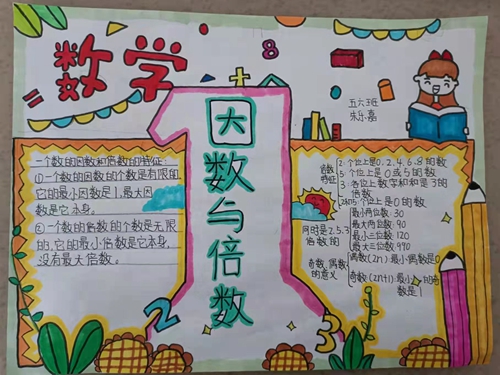 数学
8
五六班
宋乐嘉
因数与倍数
一个数的因数和倍数的特征
①一个数的因数的个数是有限的
它的最小因数是1,最大因
数是它本身。
②一个数的倍数的个数是无限
的,它的最小倍数是它本身,
没有最大倍数。
倍数特征
2 个位上是0.2.4.6.8的数
5 个位上是0或5的数
3 各位上数字和是3的
倍数
同时是2.5.3倍数的
2和5 个位上是0的数
最小两位数 30
最大两位数 90
最小三位数 120
最大三位数 990
奇数,偶数的意义
偶数(2n) 最小偶数是0
奇数(2n+1) 最小奇数是1
2
3